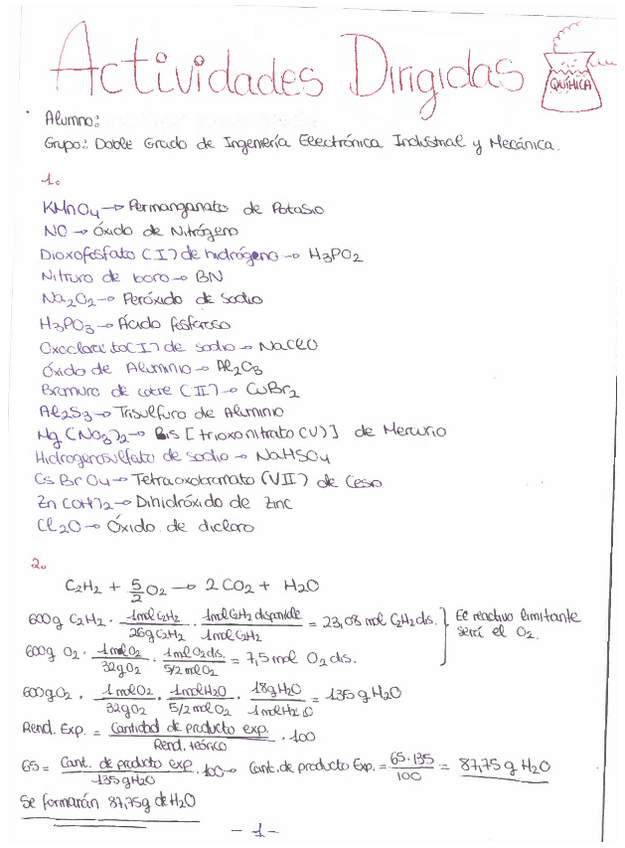 Actividades Dirigidas
QUÍMICA
Alumno:
Grupo: Doble Grado de Ingeniería Electrónica Industrial y Mecánica.
1.
KMnO4 → Permanganato de Potasio
NO → Óxido de Nitrógeno
Dioxofosfato (I) de hidrógeno → H3PO2
Nitruro de boro → BN
Na2O2 → Peróxido de sodio
H3PO3 → Ácido fosforoso
Oxoclorato (I) de sodio → NaClO
Óxido de Aluminio → Al2O3
Bromuro de cobre (II) → CuBr2
Al2S3 → Trisulfuro de Aluminio
Hg (NO3)2 → Bis [trioxonitrato (V)] de Mercurio
Hidrogenosulfato de sodio → NaHSO4
CsBrO4 → Tetraoxobromato (VII) de Cesio
Zn(OH)2 → Dihidróxido de zinc
Cl2O → Óxido de dicloro
2.
C2H2 + 5/2 O2 → 2CO2 + H2O
600g C2H2 · 1mol C2H2 / 26g C2H2 · 1mol C2H2 disponible / 1mol C2H2 = 23,08 mol C2H2 dis. } El reactivo limitante será el O2.
600g O2 · 1mol O2 / 32g O2 · 1mol O2 dis. / 5/2 mol O2 = 7,5 mol O2 dis.
600g O2 · 1mol O2 / 32g O2 · 1mol H2O / 5/2 mol O2 · 18g H2O / 1mol H2O = 135 g H2O
Rend. Exp. = Cantidad de producto exp. / Rend. teórico · 100
65 = Cant. de producto exp / 135g H2O · 100 → Cant. de producto Exp. = 65·135 / 100 = 87,75 g H2O
Se formarán 87,75g de H2O
- 1 -